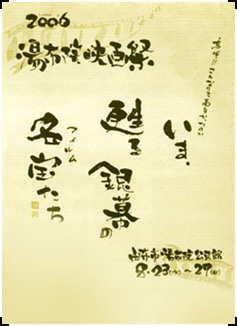 2006
湯布院映画祭
いま、
甦る
銀幕の
名宝たち
フィルム
由布市湯布院公民館
8・23(水)～27(日)